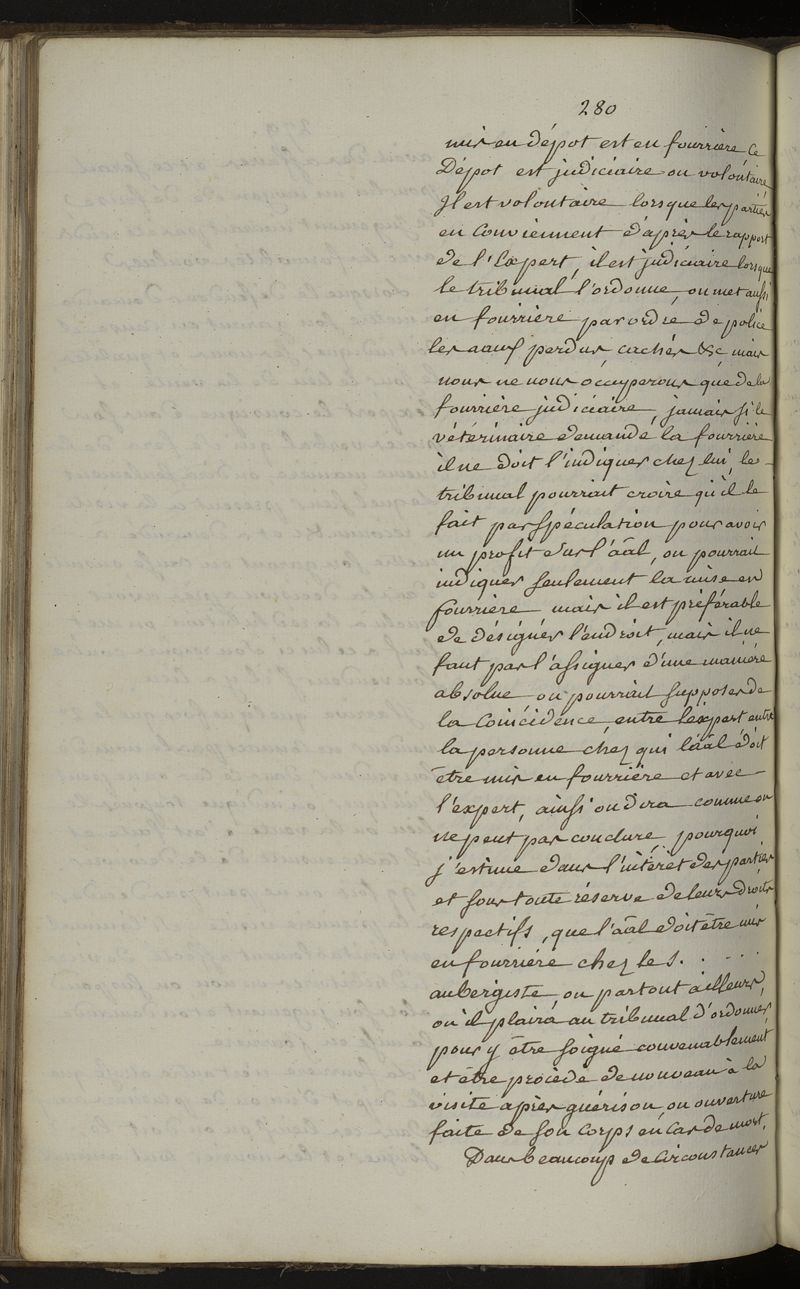 280
mis en dépot est en fourrière Ce
Dépot est judiciaire ou volontaire,
Il est volontaire lorsque les parties
en Conviennent d'après le rapport
de l'Expert, il est judiciaire lorsque
le tribunal l'ordonne, on met aussi
en fourrière par ordre de police
les aaux perdus cachés &c mais
nous ne nous óccuperons que de la
fourrière judiciaire, jamais si le
vétérinaire demande la fourrière
il ne doit l'indiquer chez lui, le
tribunal pourrait croire qu'il le
fait par spéculation pour avoir
un profit sur l'âal, on pourrait
indiquer seulement la mise en
fourrière mais il est préférable
de désigner l'endroit, mais il ne
faut pas l'assigner d'une manière
absolue on pourrait supposer de
la Coincidence entre l'expert entre
la personne chez qui l'âal doit
être mis en fourrière et avec
l'expert, ainsi on dira comme on
ne peut pas conclure pourquoi
j'estime dans l'intérêt des parties
et sous toute réserve de leurs droits
respectifs, que l'âal doit être mis
en fourrière chez le S. . . . .
aubergiste, ou partout ailleurs,
ou il plaira au tribunal d'ordonner,
pour y être soigné convenablement
et être procédé de nouveau à la
visite après guérison, ou ouverture
faite de son Corps en Cas de mort.
Dans beaucoup de Circonstances